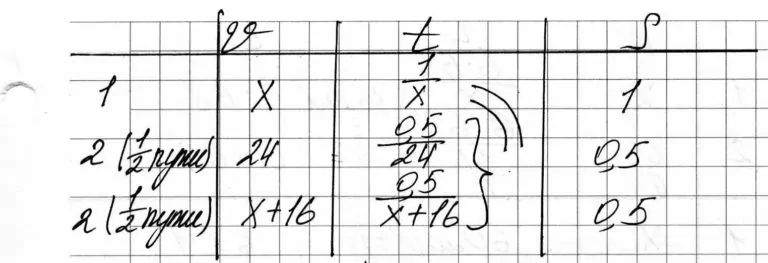 v t S
1 x 1/x 1
2 (1/2 пути) 24 0,5/24 0,5
2 (1/2 пути) x+16 0,5/x+16 0,5